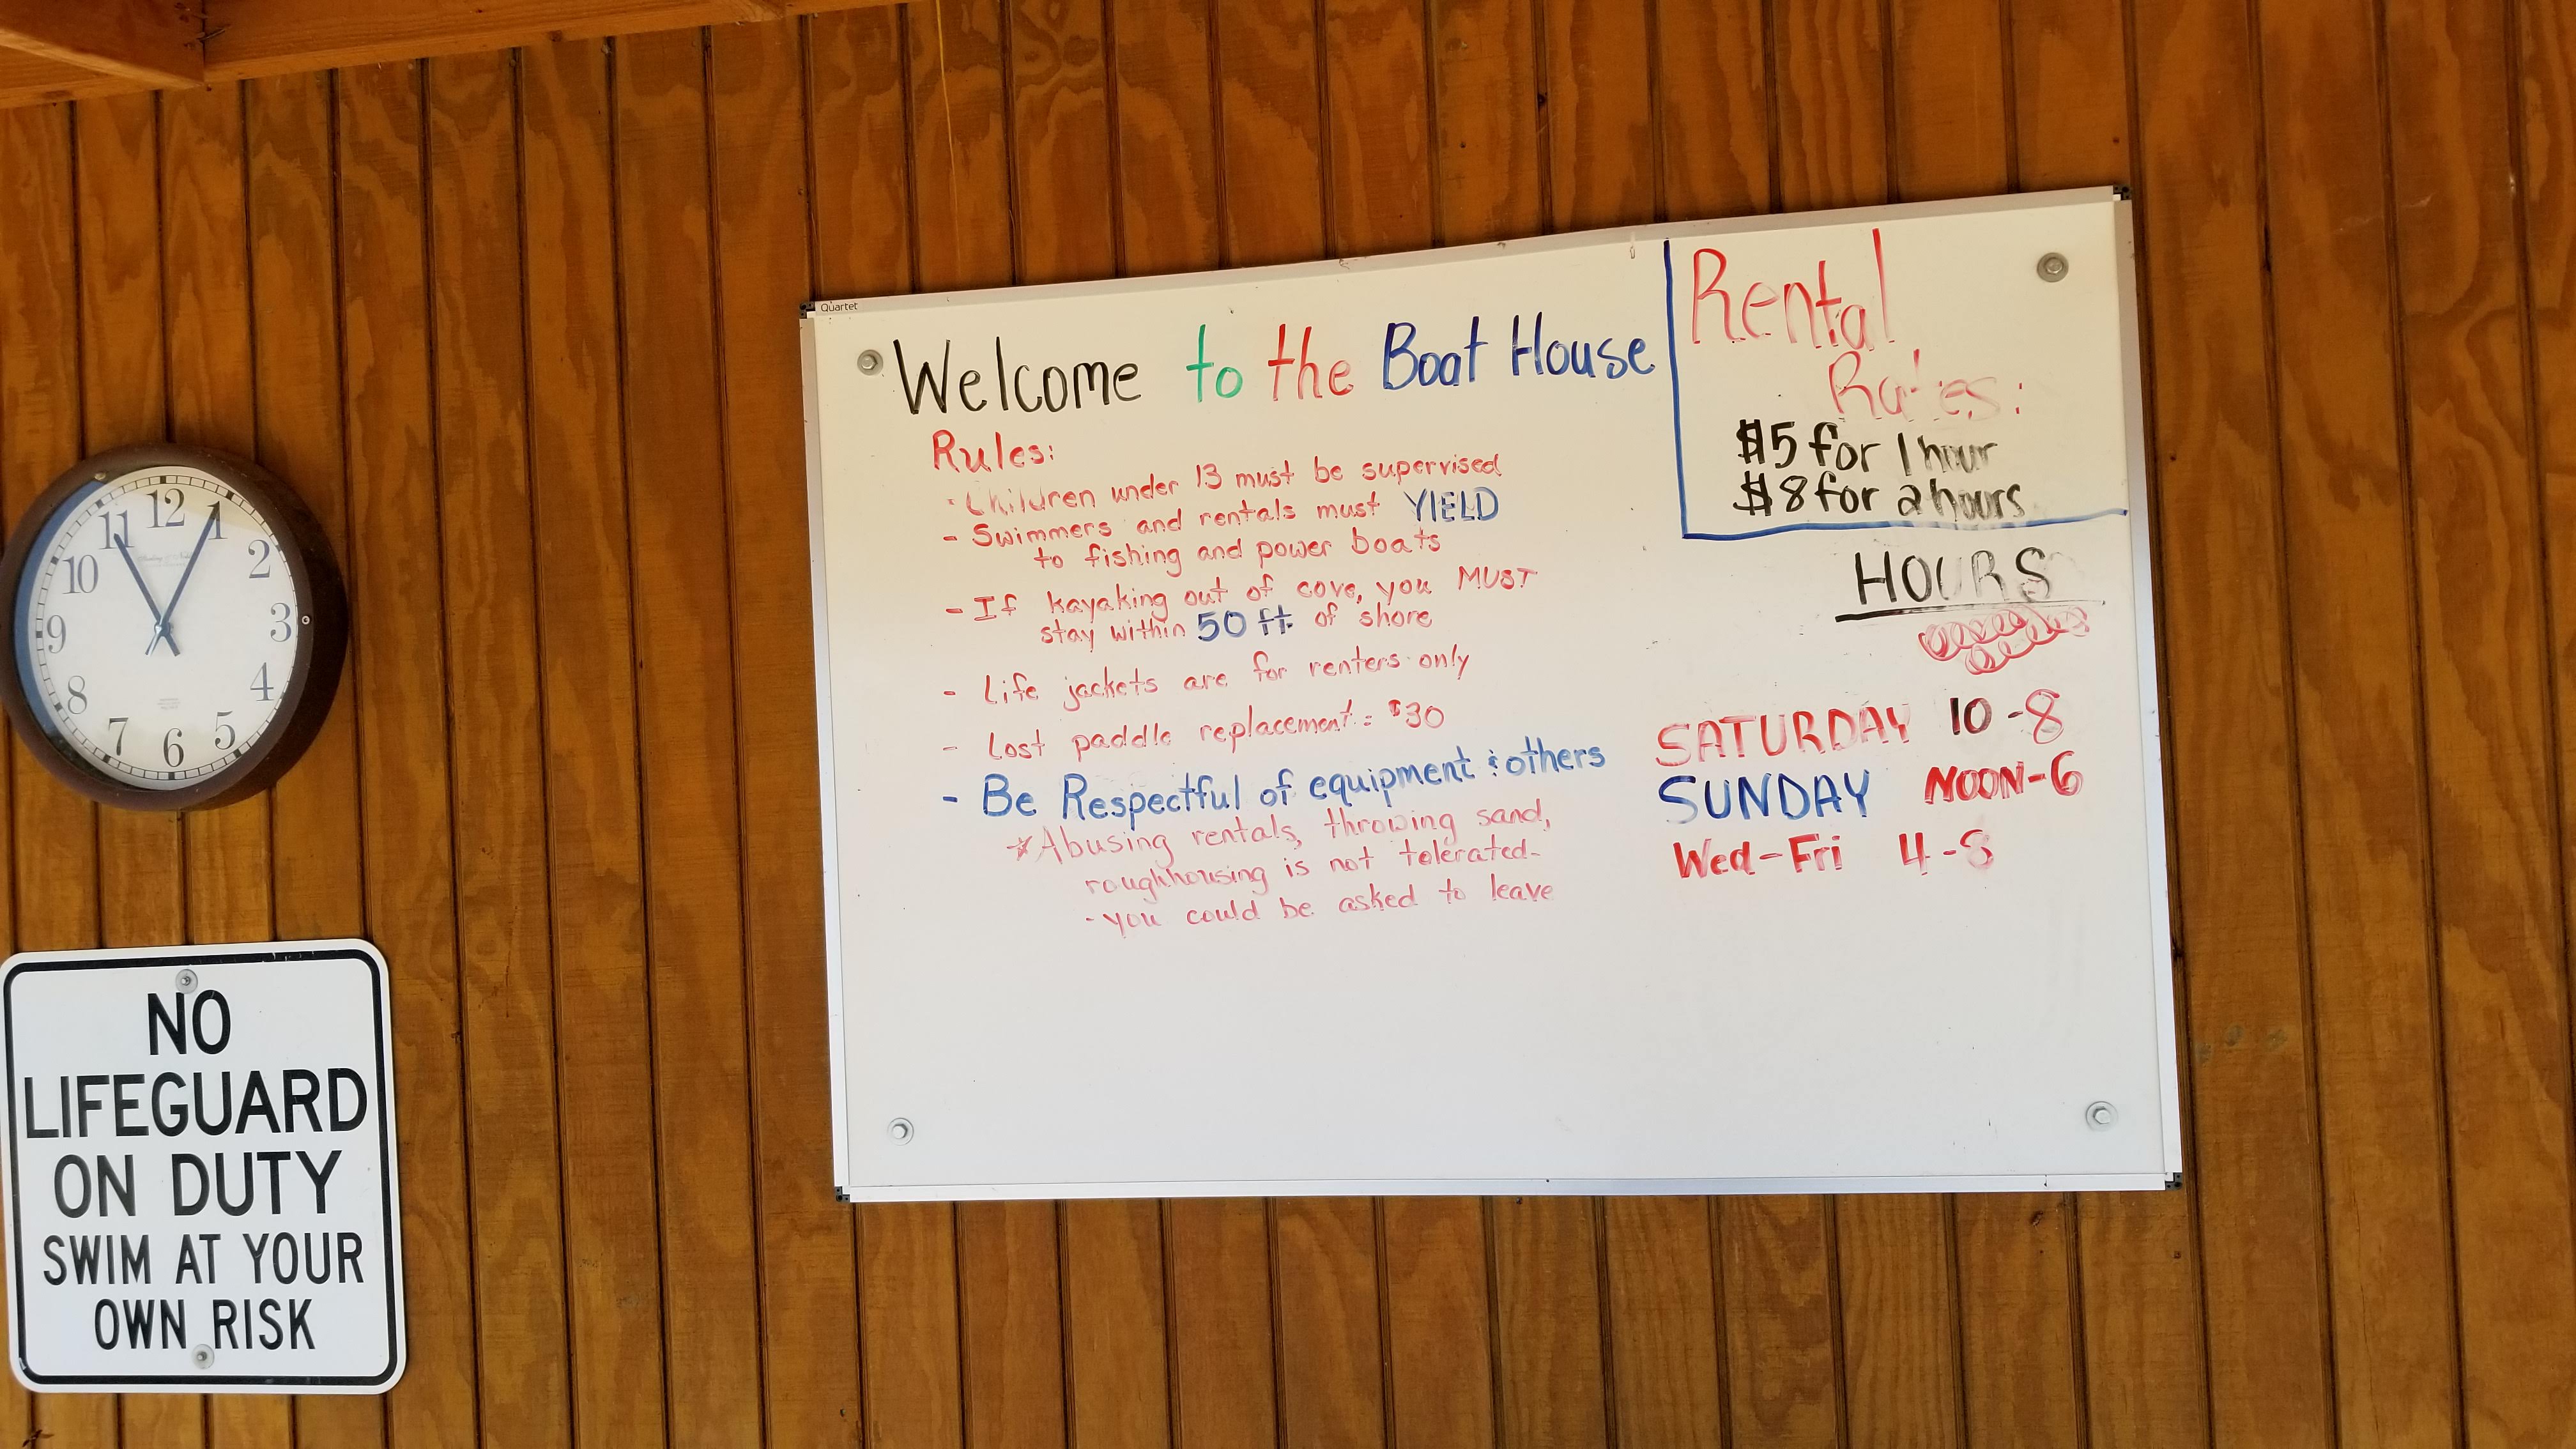 Quartet
Welcome to the Boat House
Rules:
- Children under 13 must be supervised
- Swimmers and rentals must YIELD
to fishing and power boats
- If kayaking out of cove, you MUST
stay within 50 ft. of shore
- Life jackets are for renters only
- Lost paddle replacement = $30
- Be Respectful of equipment & others
*Abusing rentals, throwing sand,
roughhousing is not tolerated-
- you could be asked to leave
Rental
Rates:
$5 for 1 hour
$8 for 2 hours
HOURS
SATURDAY 10-8
SUNDAY NOON-6
Wed-Fri 4-8
11 12 1
10 2
9 3
8 4
7 6 5
NO
LIFEGUARD
ON DUTY
SWIM AT YOUR
OWN RISK